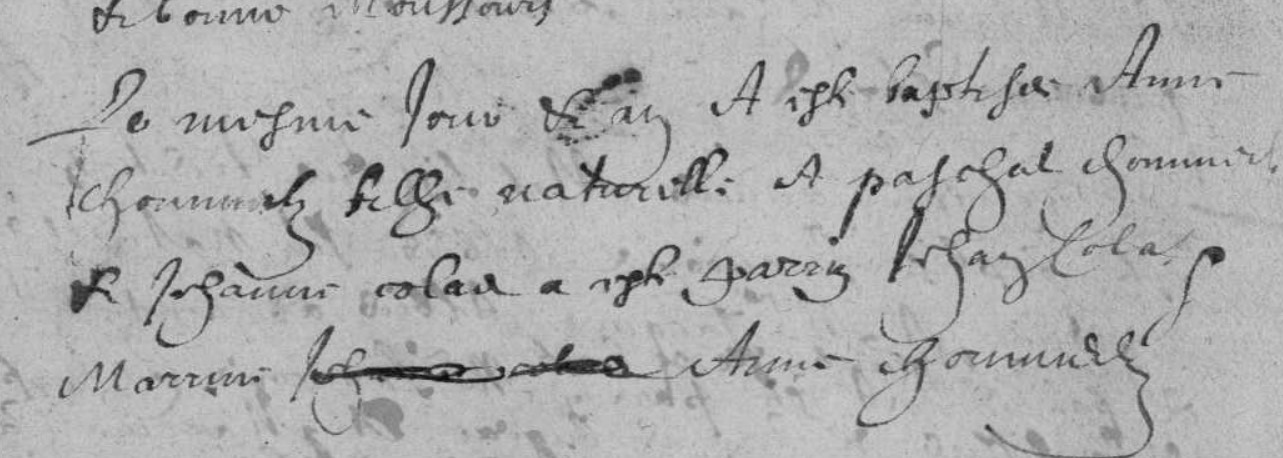 & bonne Monssours
Le mesme Jour & an A esté baptisée Anne
chommeh fille naturelle A paschal chommeh
& Jehanne colas a esté parrin Jehan Colas
Marrine Anne chommeh